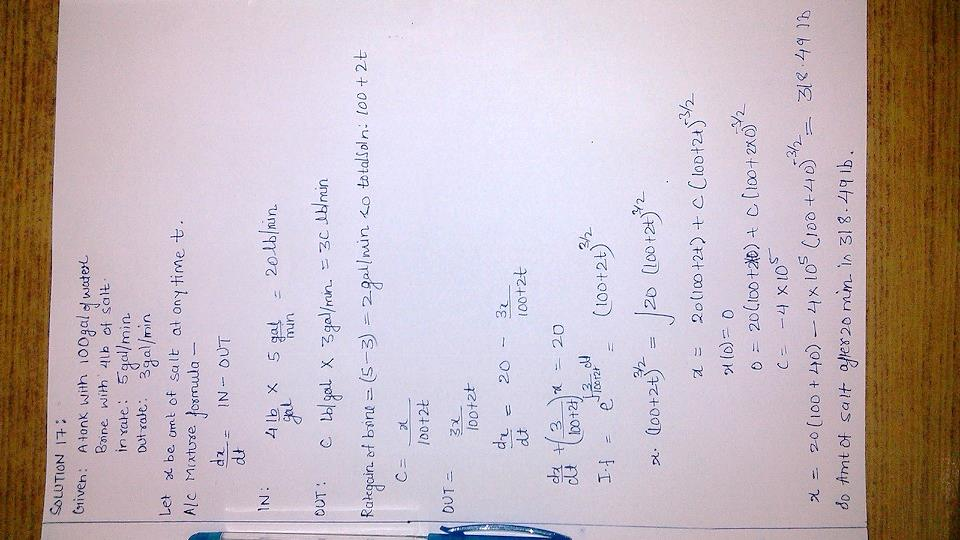 SOLUTION 17:
Given: A tank with 100 gal of water
Brine with 4lb of salt.
in rate: 5 gal/min
out rate: 3 gal/min
Let x be amt of salt at any time t.
A/C Mixture formula —
dx/dt = IN - OUT
IN: 4 lb/gal × 5 gal/min = 20 lb/min
OUT: C lb/gal × 3 gal/min = 3C lb/min
Rate gain of brine = (5-3) = 2 gal/min so total soln: 100+2t
C = x/(100+2t)
OUT = 3x/(100+2t)
dx/dt = 20 - 3x/(100+2t)
dx/dt + (3/(100+2t))x = 20
I.f = e^∫3/(100+2t) dt = (100+2t)^3/2
x. (100+2t)^3/2 = ∫20 (100+2t)^3/2
x = 20(100+2t) + C(100+2t)^-3/2
x(0) = 0
0 = 20(100+2×0) + C(100+2×0)^-3/2
C = -4×10^5
x = 20(100+40) - 4×10^5 (100+40)^-3/2 = 318.49 lb
So Amt of salt after 20 min is 318.49 lb.